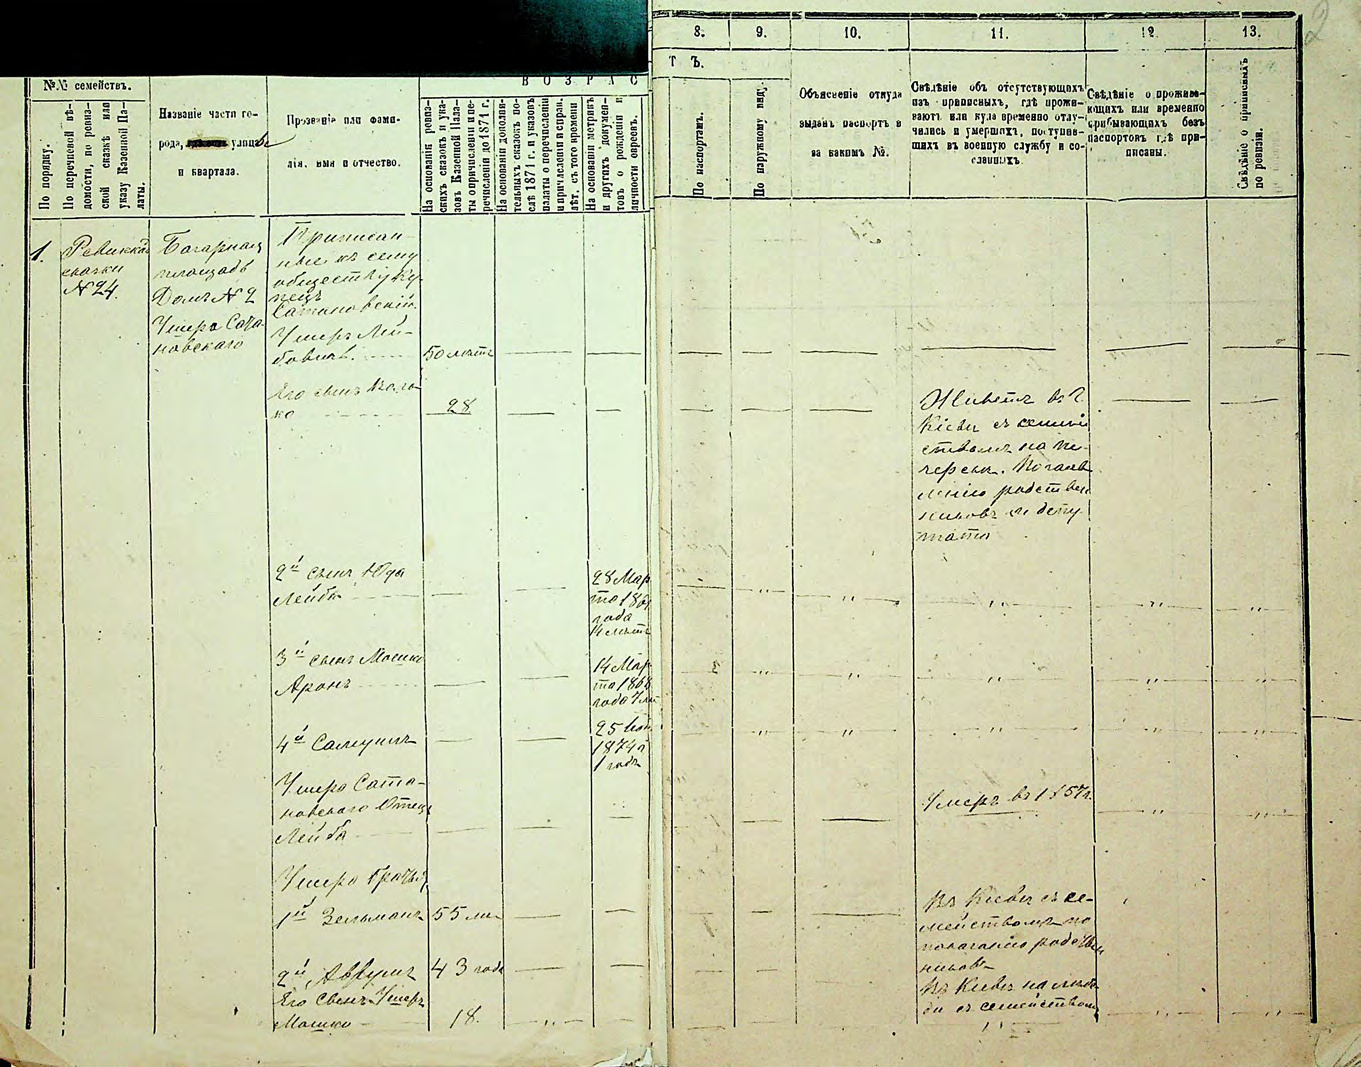 2
8.
9.
10.
11.
12
13.
№№ семействъ.
В О З Р А С
Т Ъ.
По порядку.
По перечневой вѣ-
домости, по ревиз-
ской сказкѣ или
указу Казенной Па-
латы.
Названіе части го-
рода, улицы
и квартала.
Прозваніе или фами-
лія, имя и отчество.
На основаніи ревиз-
скихъ сказокъ и ука-
зовъ Казенной Пала-
ты о причисленіи и пе-
речисленіи до 1871 г.
На основаніи дополни-
тельныхъ сказокъ по-
слѣ 1871 г. и указовъ
палаты о перечисленіи
и причисленіи и справ.
лѣт. съ того времени
На основаніи метрикъ
и другихъ докумен-
товъ о рожденіи и
личности евреевъ.
По паспортамъ.
По наружному виду.
Объясненіе откуда
выданъ паспортъ и
за какимъ №.
Свѣдѣніе объ отсутствующихъ
изъ приписныхъ, гдѣ прожи-
ваютъ или куда временно отлу-
чились и умершихъ, поступив-
шихъ въ военную службу и со-
сланныхъ.
Свѣдѣніе о прожива-
ющихъ или временно
прибывающихъ безъ
паспортовъ гдѣ при-
писаны.
Свѣдѣніе о приписныхъ
по ревизіи.
1.
Ревизкая
сказки
№ 24.
Базарная
площадь
Домъ № 2
Ушера Сата-
новскаго
Приписан-
ные къ сему
обществу Ку-
пецъ
Сатановскій
Ушеръ Лей-
бовичъ.
50 лѣтъ
Его сынъ
ко
28
Живетъ въ г
Кіевѣ съ семей
ствомъ на Пе-
черскѣ. Показа
нію родствен
никовъ и депу
тата
2й сынъ Юда
Лейба
28 Мар
та 186
года
14 лѣтъ
3й сынъ Мошко
Аронъ
14 Мар
та 1868
года 7 лѣ
4й Самуилъ
25
1874
1 годъ
Ушера Сата-
новскаго Отецъ
Лейба
Умеръ въ 1857 г.
Ушера братья
1й Зельманъ
55 лѣ
Въ Кіевѣ съ се-
мействомъ по
показанію родствен
никовъ
2й Аврумъ
43 года
Его Сынъ Ушеръ
Мошко
18
Въ Кіевѣ на
съ семействомъ